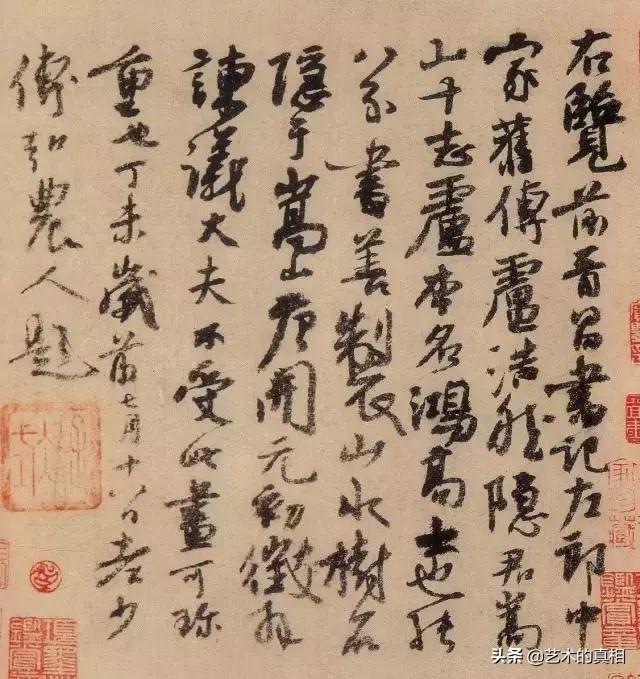 右覽前晉昌書記左郎中
家舊傳盧浩然隱君嵩
山十志盧本名鴻高士也能
八分書善製山水樹石
隱于嵩山唐開元初徵拜
諫議大夫不受此畫可珍
重也丁未歲前七月十八日老少
傅弘農人題
头条 @艺术的真相